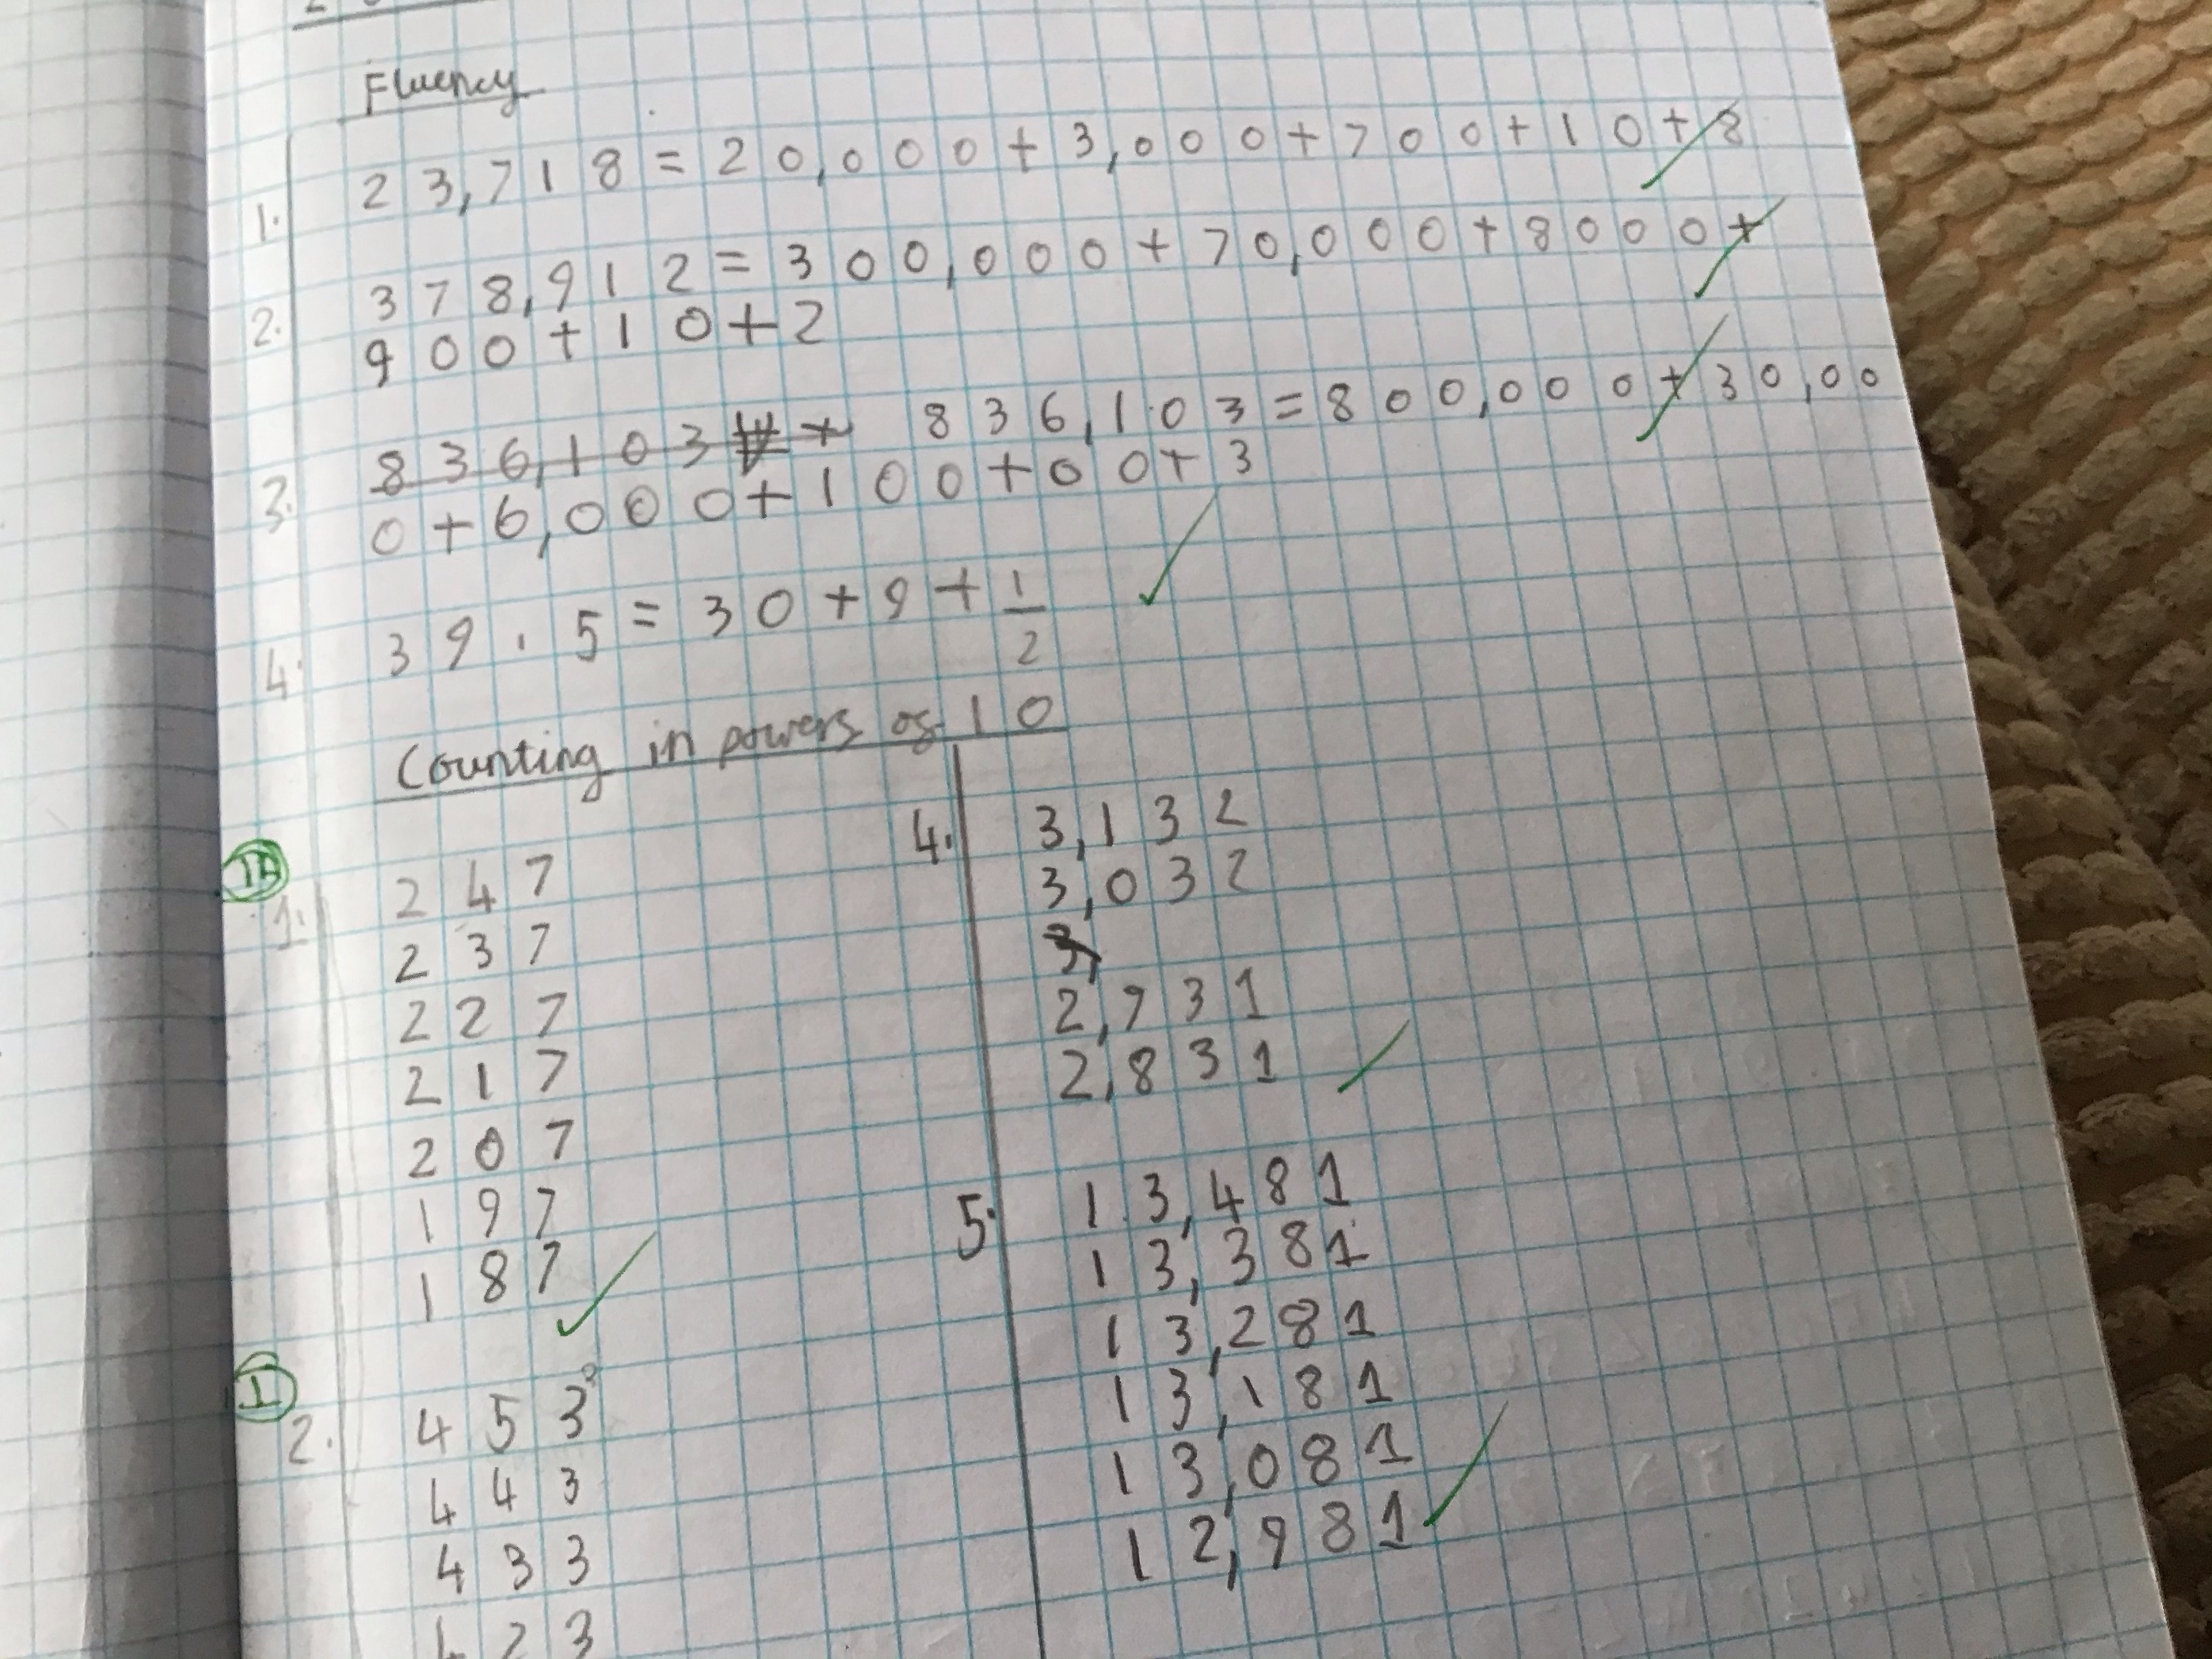 Fluency
1. 23,718 = 20,000 + 3,000 + 700 + 10 + 8
2. 378,912 = 300,000 + 70,000 + 8000 +
900 + 10 + 2
3. 836,103 + 836,103 = 800,000 + 30,00
0 + 6,000 + 100 + 00 + 3
4. 39.5 = 30 + 9 + 1/2
Counting in powers of 10
TA
1. 247
237
227
217
207
197
187
I
2. 453
443
433
423
4. 3,132
3,032
3,
2,931
2,831
5. 13,481
13,381
13,281
13,181
13,081
12,981